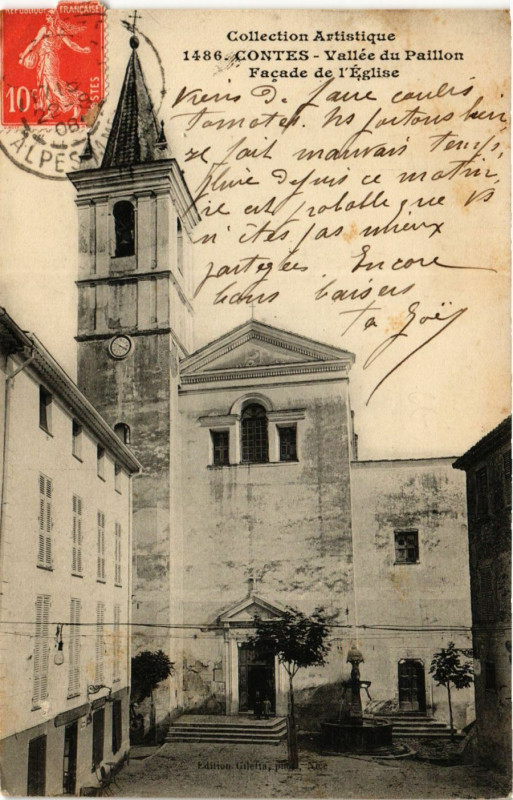 RÉPUBLIQUE FRANÇAISE
10
POSTES
ALPES
06
Collection Artistique
1486. CONTES - Vallée du Paillon
Façade de l'Église
Viens de faire coulis
tomates. Ns partons bien
fait mauvais temps,
pluie depuis ce matin,
est probable que vs
n'êtes pas mieux
partagées. Encore
bons baisers
ta Zoë
Edition Giletta, phot, Nice